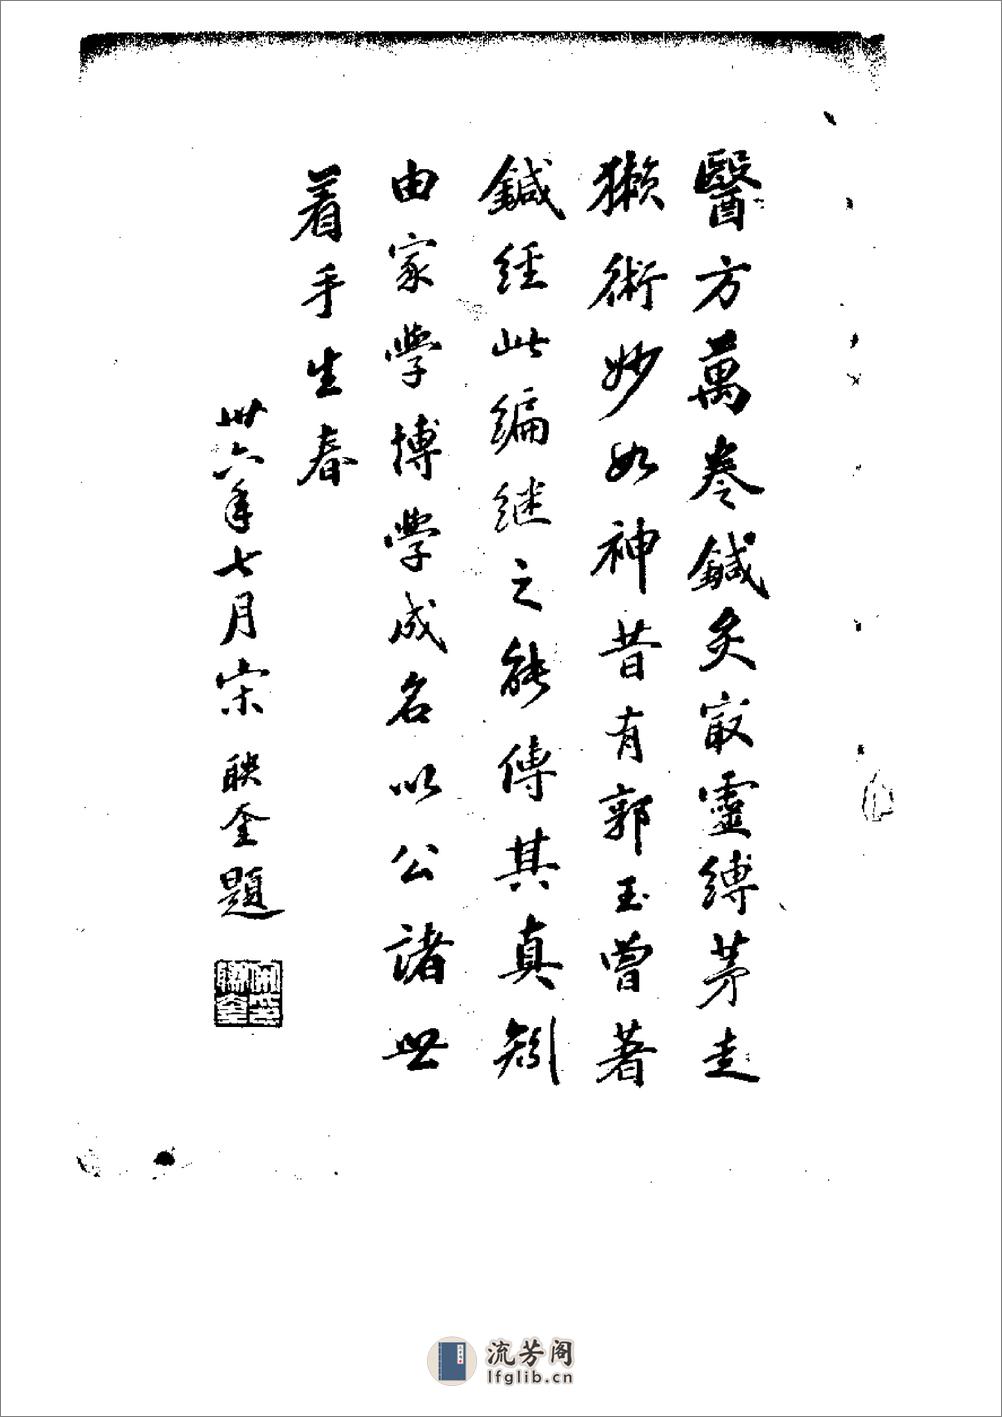 醫方萬卷鍼灸㝡靈縛茅走
獺術妙如神昔有郭玉曾著
鍼經此编继之能傳其真矧
由家學博學成名以公諸世
着手生春
卅六年七月宋聯奎題
流芳阁
lfglib.cn